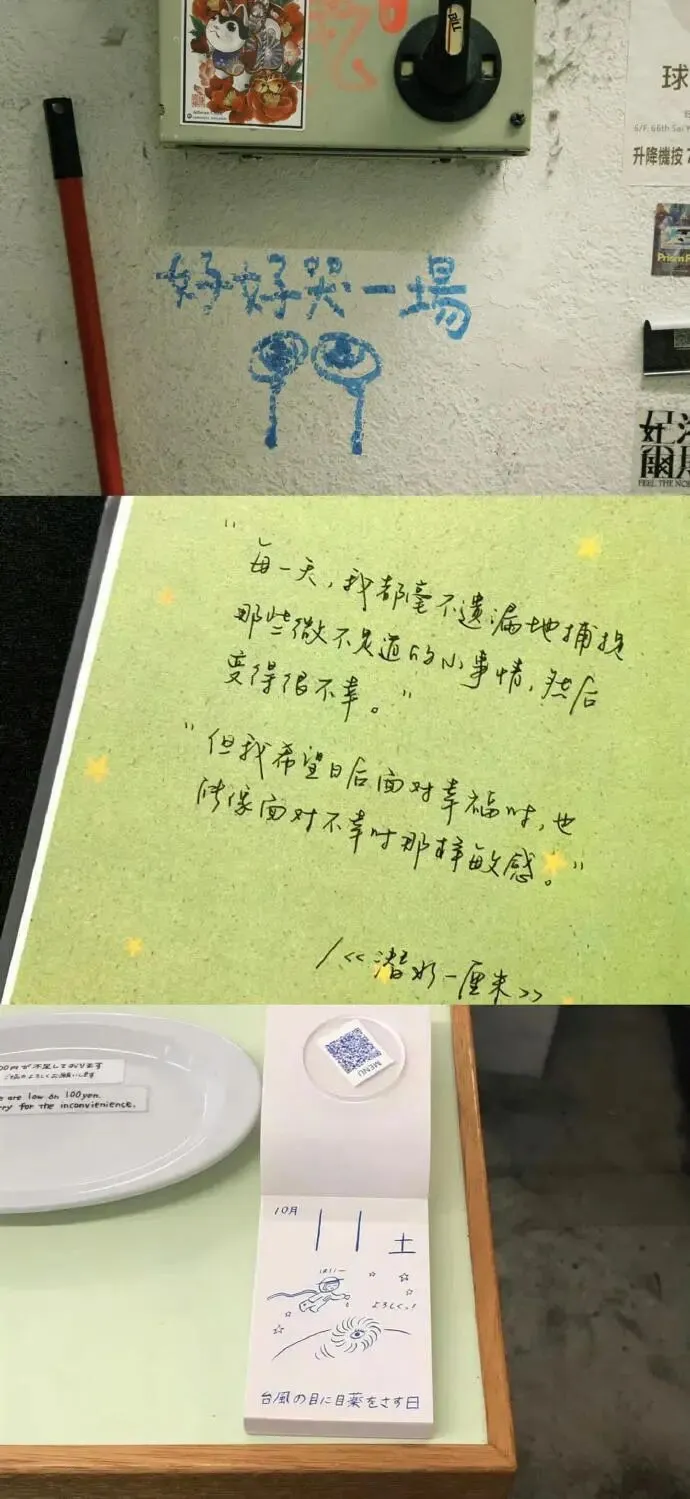 球
6/F, 66th Sai Y
升降機按 7
Prism P
好好哭一場
FEEL THE NOR
"每一天，我都毫不遗漏地捕捉
那些微不足道的小事情，然后
变得很不幸。"
"但我希望日后面对幸福时，也
能像面对不幸时那样敏感。"
/《潜水一厘米》
00円が不足しております
ご協力よろしくお願いします
e are low on 100yen.
rry for the inconvienience.
MENU
10月
11
土
よろしくっ!
台風の目に目薬をさす日